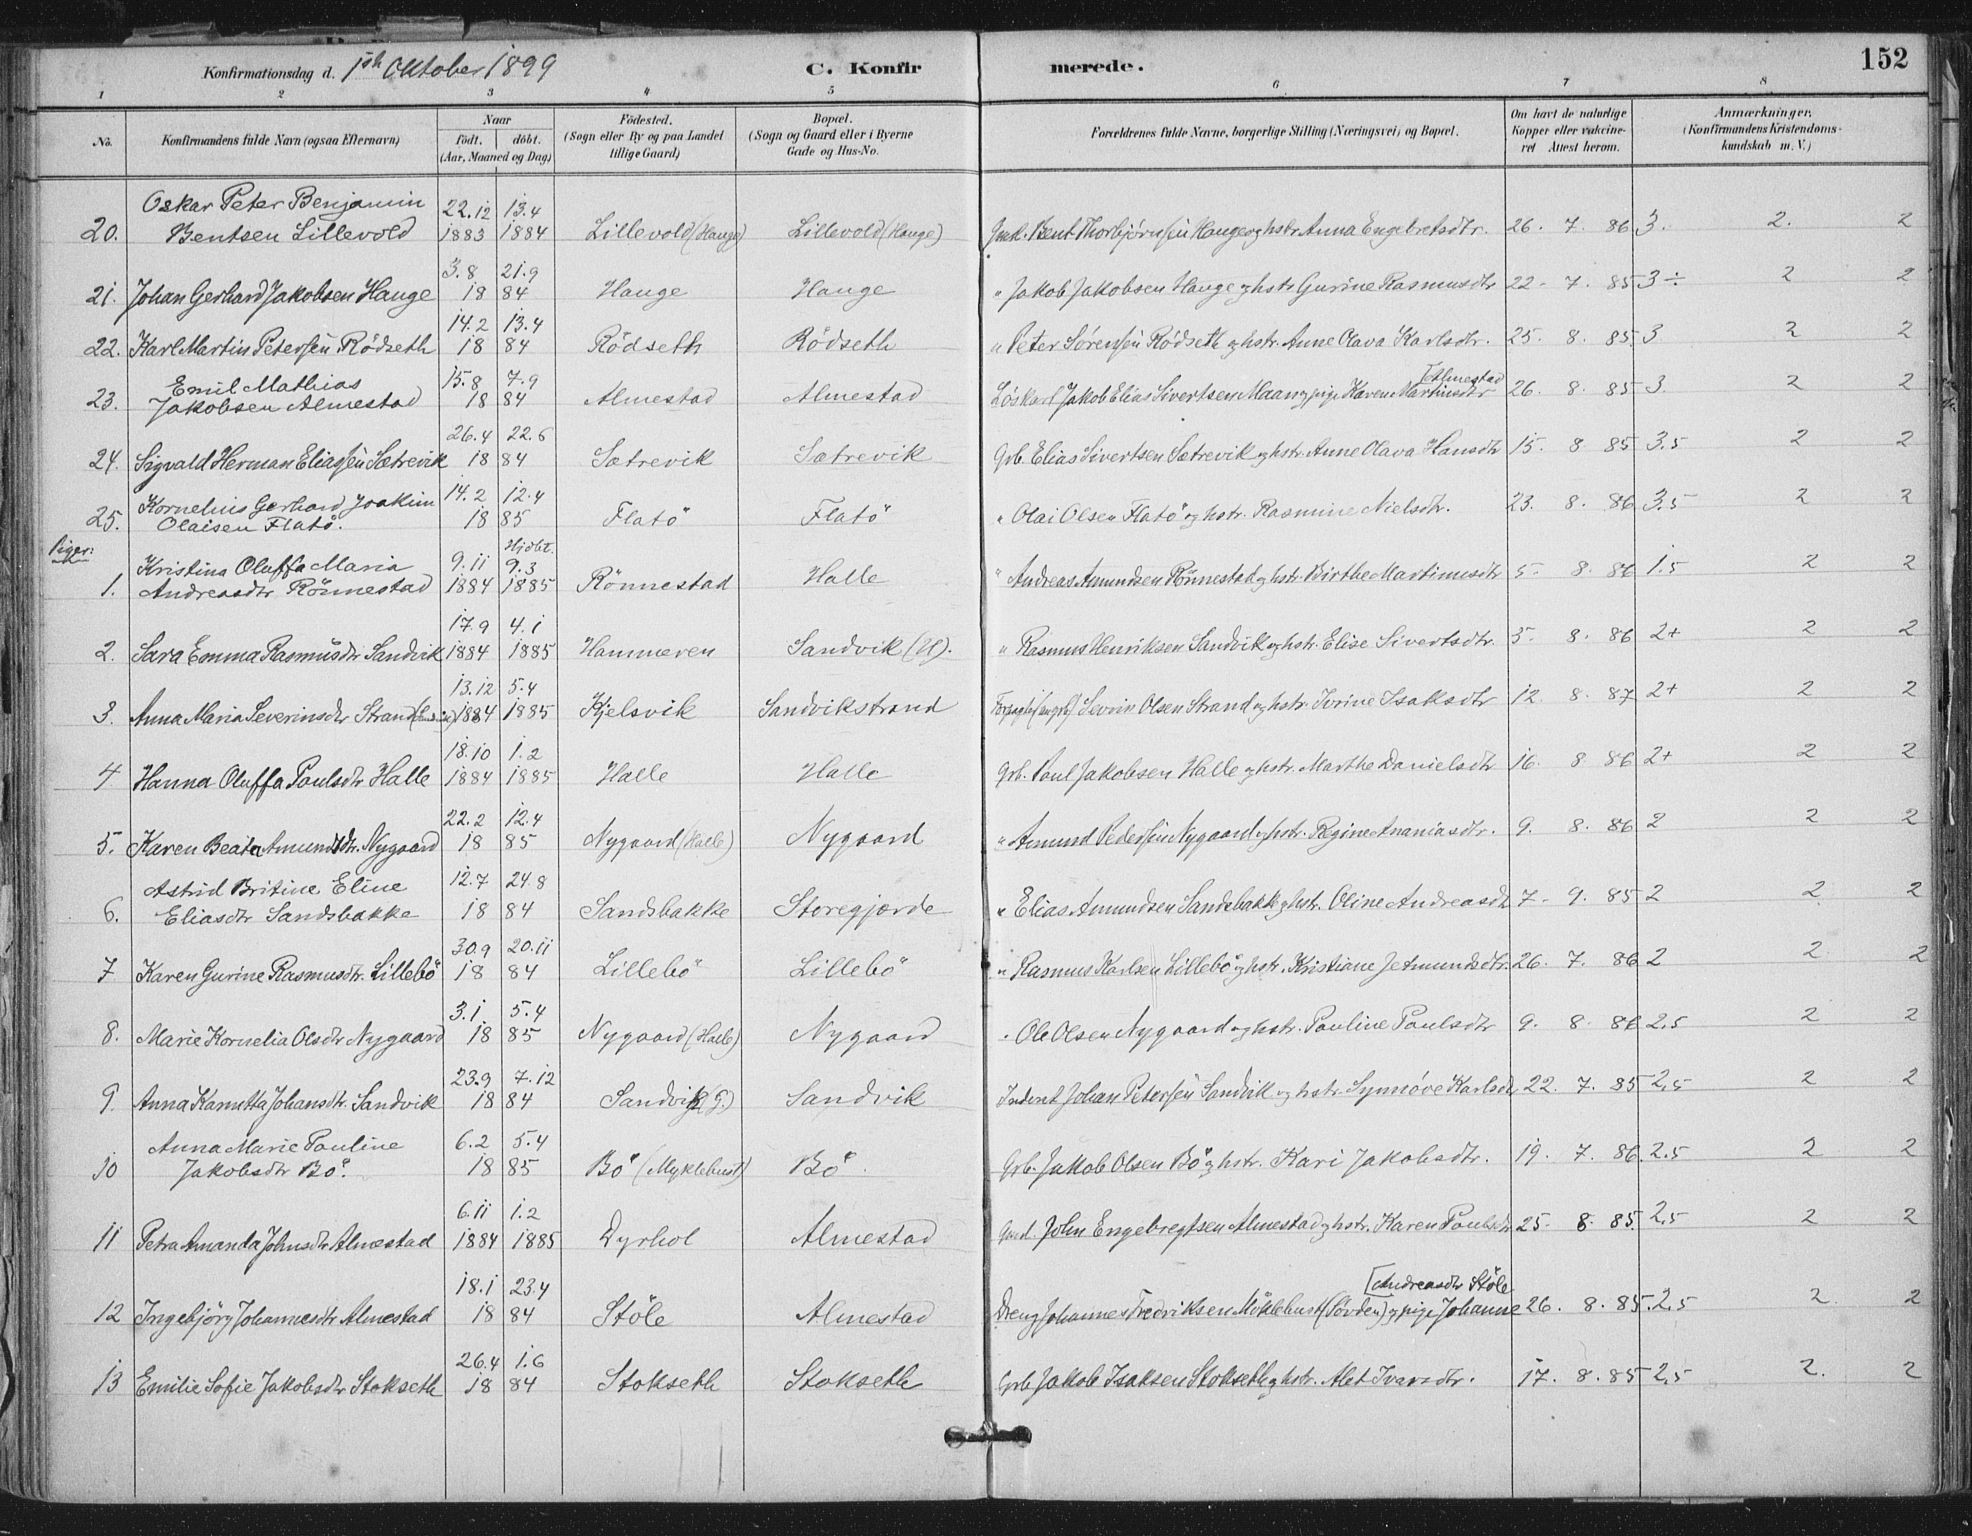 Konfirmationsdag d. 1ste Oktober 1899 C. Konfirmerede. 152
1 2 3 4 5 6 7 8
No. Konfirmandens fulde Navn (ogsaa Efternavn) Naar født. døbt. (Aar, Maaned og Dag) Fødested. (Sogn eller By og paa Landet tillige Gaard) Bopæl. (Sogn og Gaard eller i Byerne Gade og Hus-No. Forældrenes fulde Navne, borgerlige Stilling (Næringsvei) og Bopæl. Om havt de naturlige Kopper eller vakcineret Attest herom. Anmærkninger. (Konfirmandens Kristendomskundskab m. V.)
Oskar Peter Benjamin 22.12 13.4
20. Bentsen Lillevold 1883 1884 Lillevold (Hauge) Lillevold (Hauge) Bent Thorbjørnsen Hauge og hstr. Anna Engebretsdtr. 26. 7. 86 3. 2. 2
3.8 21.9
21. Johan Gerhard Jakobsen Hauge 18 84 Hauge Hauge " Jakob Jakobsen Hauge og hstr Gurine Rasmusdtr 22. 7. 85 3÷ 2 2
14.2 13.4
22. Karl Martin Petersen Rödseth 18 84 Rödseth Rödseth " Peter Sørensen Rödseth og hstr. Anne Olava Karlsdtr. 25. 8. 85 3 2 2
Emil Mathias 15.8 7.9 [Almestad
23. Jakobsen Almestad 18 84 Almestad Almestad Löskarl Jakob Elias Sivertsen Maan og pige Karen Martinsdtr 26. 8. 85 3. 2 2
26.4 22.6
24. Sigvald Herman Eliassen Sætrevik 18 84 Sætrevik Sætrevik Grb. Elias Sivertsen Sætrevik og hstr. Anne Olava Hansdtr 15. 8 85 3.5 2 2
Kornelius Gerhard Joakim 14.2 12.4
25. Olaisen Flatö. 18 85 Flatö Flatö " Olai Olsen Flatö og hstr. Rasmine Nielsdtr. 23. 8. 86 3.5 2 2
Piger: Hjdbt.
Kristina Oluffa Maria 9.11 9.3
1. Andreasdtr Rönnestad 1884 1885 Rönnestad Halle " Andreas Amundsen Rönnestad og hstr. Birthe Martinusdtr 5. 8. 86 1.5 2 2
17.9 4.1
2. Sara Emma Rasmusdtr Sandvik 1884 1885 Hammeren Sandvik (U). " Rasmus Henriksen Sandvik og hstr. Elise Sivertsdtr. 5. 8. 86 2+ 2 2
13.12 5.4
3. Anna Maria Severinsdtr Strand 1884 1885 Kjelsvik Sandvikstrand Severin Olsen Strand og hstr. Ivrine Isaksdtr 12. 8. 87 2+ 2 2
18.10 1.2
4 Hanna Oluffa Paulsdtr Halle 1884 1885 Halle Halle Grb. Paul Jakobsen Halle og hstr. Marthe Danielsdtr 16. 8 86 2+ 2 2
22.2 12.4
5. Karen Beate Amundsdtr. Nygaard 18 85 Nygaard (Halle) Nygaard " Amund Pedersen Nygaard og hstr. Regine Ananiasdtr. 9. 8. 86 2 2 2
Astrid Britine Eline 12.7 24.8
6. Eliasdtr Sandsbakke 18 84 Sandsbakke Storegjærde " Elias Amundsen Sandsbakk og hstr. Oline Andreasdtr 7. 9. 85 2 2 2
30.9 20.11
7 Karen Gurine Rasmusdtr. Lillebö 18 84 Lillebö Lillebö " Rasmus Karlsen Lillebö og hstr. Kristiane Jetmundsdtr. 26. 7. 86 2 2 2
3.1 5.4
8. Marie Kornelia Olsdtr Nygaard 18 85 Nygaard (Halle) Nygaard " Ole Olsen Nygaard og hstr. Pauline Paulsdtr 9. 8. 86 2.5 2 2
23.9 7.12
9. Anna Kanutta Johansdtr. Sandvik 18 84 Sandvik (G.) Sandvik Inderst Johan Petersen Sandvik og hstr. Synnöve Karlsdtr 22. 7. 85 2.5 2 2
Anna Marie Pauline 6.2 5.4
10 Jakobsdtr Bö. 18 85 Bö (Myklebust) Bö. Grb. Jakob Olsen Bö og hstr. Kari Jakobsdtr. 19. 7. 86. 2.5 2 2
6.11 1.2
11 Petra Amanda Johnsdtr Almestad 1884 1885 Dyrhol Almestad John Engebregtsen Almestad og hstr. Karen Paulsdtr 25. 8. 85. 2.5 2 2
18.1 23.4 [Andreasdtr Stöle
12 Ingebjörg Johannesdtr Almestad 18 84 Stöle Almestad Dreng Johannes Fredriksen Möklebust (Sövden) og pige Johanne 26. 8. 85. 2.5 2 2
26.4 1.6
13 Emilie Sofie Jakobsdtr Stokseth 18 84 Stokseth Stokseth Grb Jakob Isaksen Stokseth og hstr. Alet Ivarsdtr. 17. 8. 85 2.5 2. 2